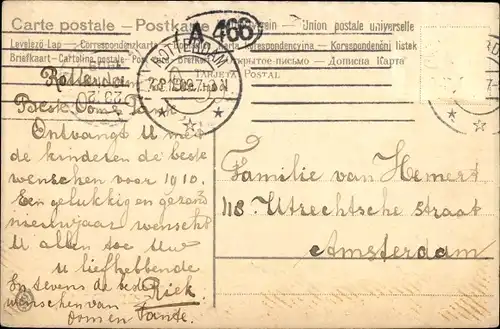 Carte postale – Postkarte
Union postale universelle
A 466
Levelező-Lap — Correspondenzkarte
Korespondencyjna — Korespondenční lístek
Briefkaart — Cartolina postale
открытое письмо — Дописна Карта
TARJETA POSTAL
ROTTERDAM
Rotterdam
Beste Oom & Tante
Ontvangt U met
de kinderen de beste
wenschen voor 1910.
Een gelukkig en gezond
nieuwjaar wenscht
U allen toe Uw
U liefhebbende
Riek
En tevens de beste
wenschen van
Oom en Tante.
Familie van Hemert
118 Utrechtsche straat
Amsterdam